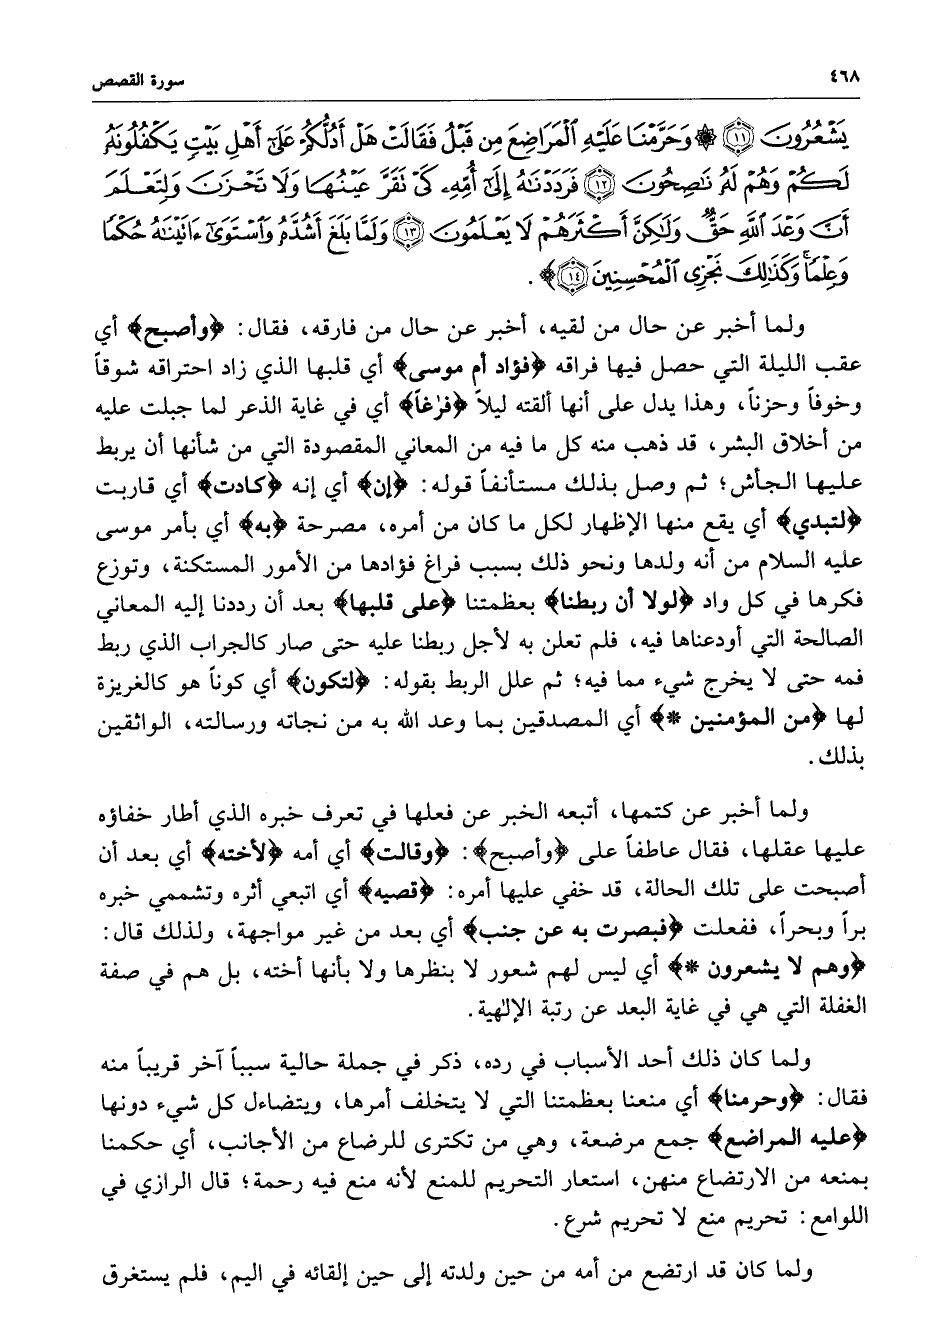 ٤٦٨
سورة القصص
يَشْعُرُونَ ﴿١١﴾ ۞ وَحَرَّمْنَا عَلَيْهِ ٱلْمَرَاضِعَ مِن قَبْلُ فَقَالَتْ هَلْ أَدُلُّكُمْ عَلَىٰٓ أَهْلِ بَيْتٍ يَكْفُلُونَهُۥ
لَكُمْ وَهُمْ لَهُۥ نَٰصِحُونَ ﴿١٢﴾ فَرَدَدْنَٰهُ إِلَىٰٓ أُمِّهِۦ كَىْ تَقَرَّ عَيْنُهَا وَلَا تَحْزَنَ وَلِتَعْلَمَ
أَنَّ وَعْدَ ٱللَّهِ حَقٌّ وَلَٰكِنَّ أَكْثَرَهُمْ لَا يَعْلَمُونَ ﴿١٣﴾ وَلَمَّا بَلَغَ أَشُدَّهُۥ وَٱسْتَوَىٰٓ ءَاتَيْنَٰهُ حُكْمًا
وَعِلْمًا ۚ وَكَذَٰلِكَ نَجْزِى ٱلْمُحْسِنِينَ ﴿١٤﴾﴾ .
ولما أخبر عن حال من لقيه، أخبر عن حال من فارقه، فقال: ﴿وأصبح﴾ أي
عقب الليلة التي حصل فيها فراقه ﴿فؤاد أم موسى﴾ أي قلبها الذي زاد احتراقه شوقاً
وخوفاً وحزناً، وهذا يدل على أنها ألقته ليلاً ﴿فرٰغاً﴾ أي في غاية الذعر لما جبلت عليه
من أخلاق البشر، قد ذهب منه كل ما فيه من المعاني المقصودة التي من شأنها أن يربط
عليها الجأش؛ ثم وصل بذلك مستأنفاً قوله: ﴿إن﴾ أي إنه ﴿كادت﴾ أي قاربت
﴿لتبدي﴾ أي يقع منها الإظهار لكل ما كان من أمره، مصرحة ﴿به﴾ أي بأمر موسى
عليه السلام من أنه ولدها ونحو ذلك بسبب فراغ فؤادها من الأمور المستكنة، وتوزع
فكرها في كل واد ﴿لولا أن ربطنا﴾ بعظمتنا ﴿على قلبها﴾ بعد أن رددنا إليه المعاني
الصالحة التي أودعناها فيه، فلم تعلن به لأجل ربطنا عليه حتى صار كالجراب الذي ربط
فمه حتى لا يخرج شيء مما فيه؛ ثم علل الربط بقوله: ﴿لتكون﴾ أي كوناً هو كالغريزة
لها ﴿من المؤمنين *﴾ أي المصدقين بما وعد الله به من نجاته ورسالته، الواثقين
بذلك.
ولما أخبر عن كتمها، أتبعه الخبر عن فعلها في تعرف خبره الذي أطار خفاؤه
عليها عقلها، فقال عاطفاً على ﴿وأصبح﴾: ﴿وقالت﴾ أي أمه ﴿لأخته﴾ أي بعد أن
أصبحت على تلك الحالة، قد خفي عليها أمره: ﴿قصيه﴾ أي اتبعي أثره وتشممي خبره
براً وبحراً، ففعلت ﴿فبصرت به عن جنب﴾ أي بعد من غير مواجهة، ولذلك قال:
﴿وهم لا يشعرون *﴾ أي ليس لهم شعور لا بنظرها ولا بأنها أخته، بل هم في صفة
الغفلة التي هي في غاية البعد عن رتبة الإلٰهية.
ولما كان ذلك أحد الأسباب في رده، ذكر في جملة حالية سبباً آخر قريباً منه
فقال: ﴿وحرمنا﴾ أي منعنا بعظمتنا التي لا يتخلف أمرها، ويتضاءل كل شيء دونها
﴿عليه المراضع﴾ جمع مرضعة، وهي من تكترى للرضاع من الأجانب، أي حكمنا
بمنعه من الارتضاع منهن، استعار التحريم للمنع لأنه منع فيه رحمة؛ قال الرازي في
اللوامع: تحريم منع لا تحريم شرع.
ولما كان قد ارتضع من أمه من حين ولدته إلى حين إلقائه في اليم، فلم يستغرق